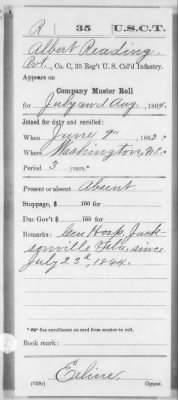 R 35 U.S.C.T.
Albert Reading
Pvt., Co. C, 35 Reg't U. S. Col'd Infantry.
Appears on
Company Muster Roll
for July and Aug, 1864.
Joined for duty and enrolled:
When June 9", 1863.*
Where Washington, N.C.
Period 3 years.*
Present or absent Absent
Stoppage, $ 100 for
Due Gov't $ 100 for
Remarks: Gen Hosp. Jack-
sonville Fla. since
July 23d, 1864.
* See enrollment on card from muster-in roll.
Book mark:
(358c) Copyist.